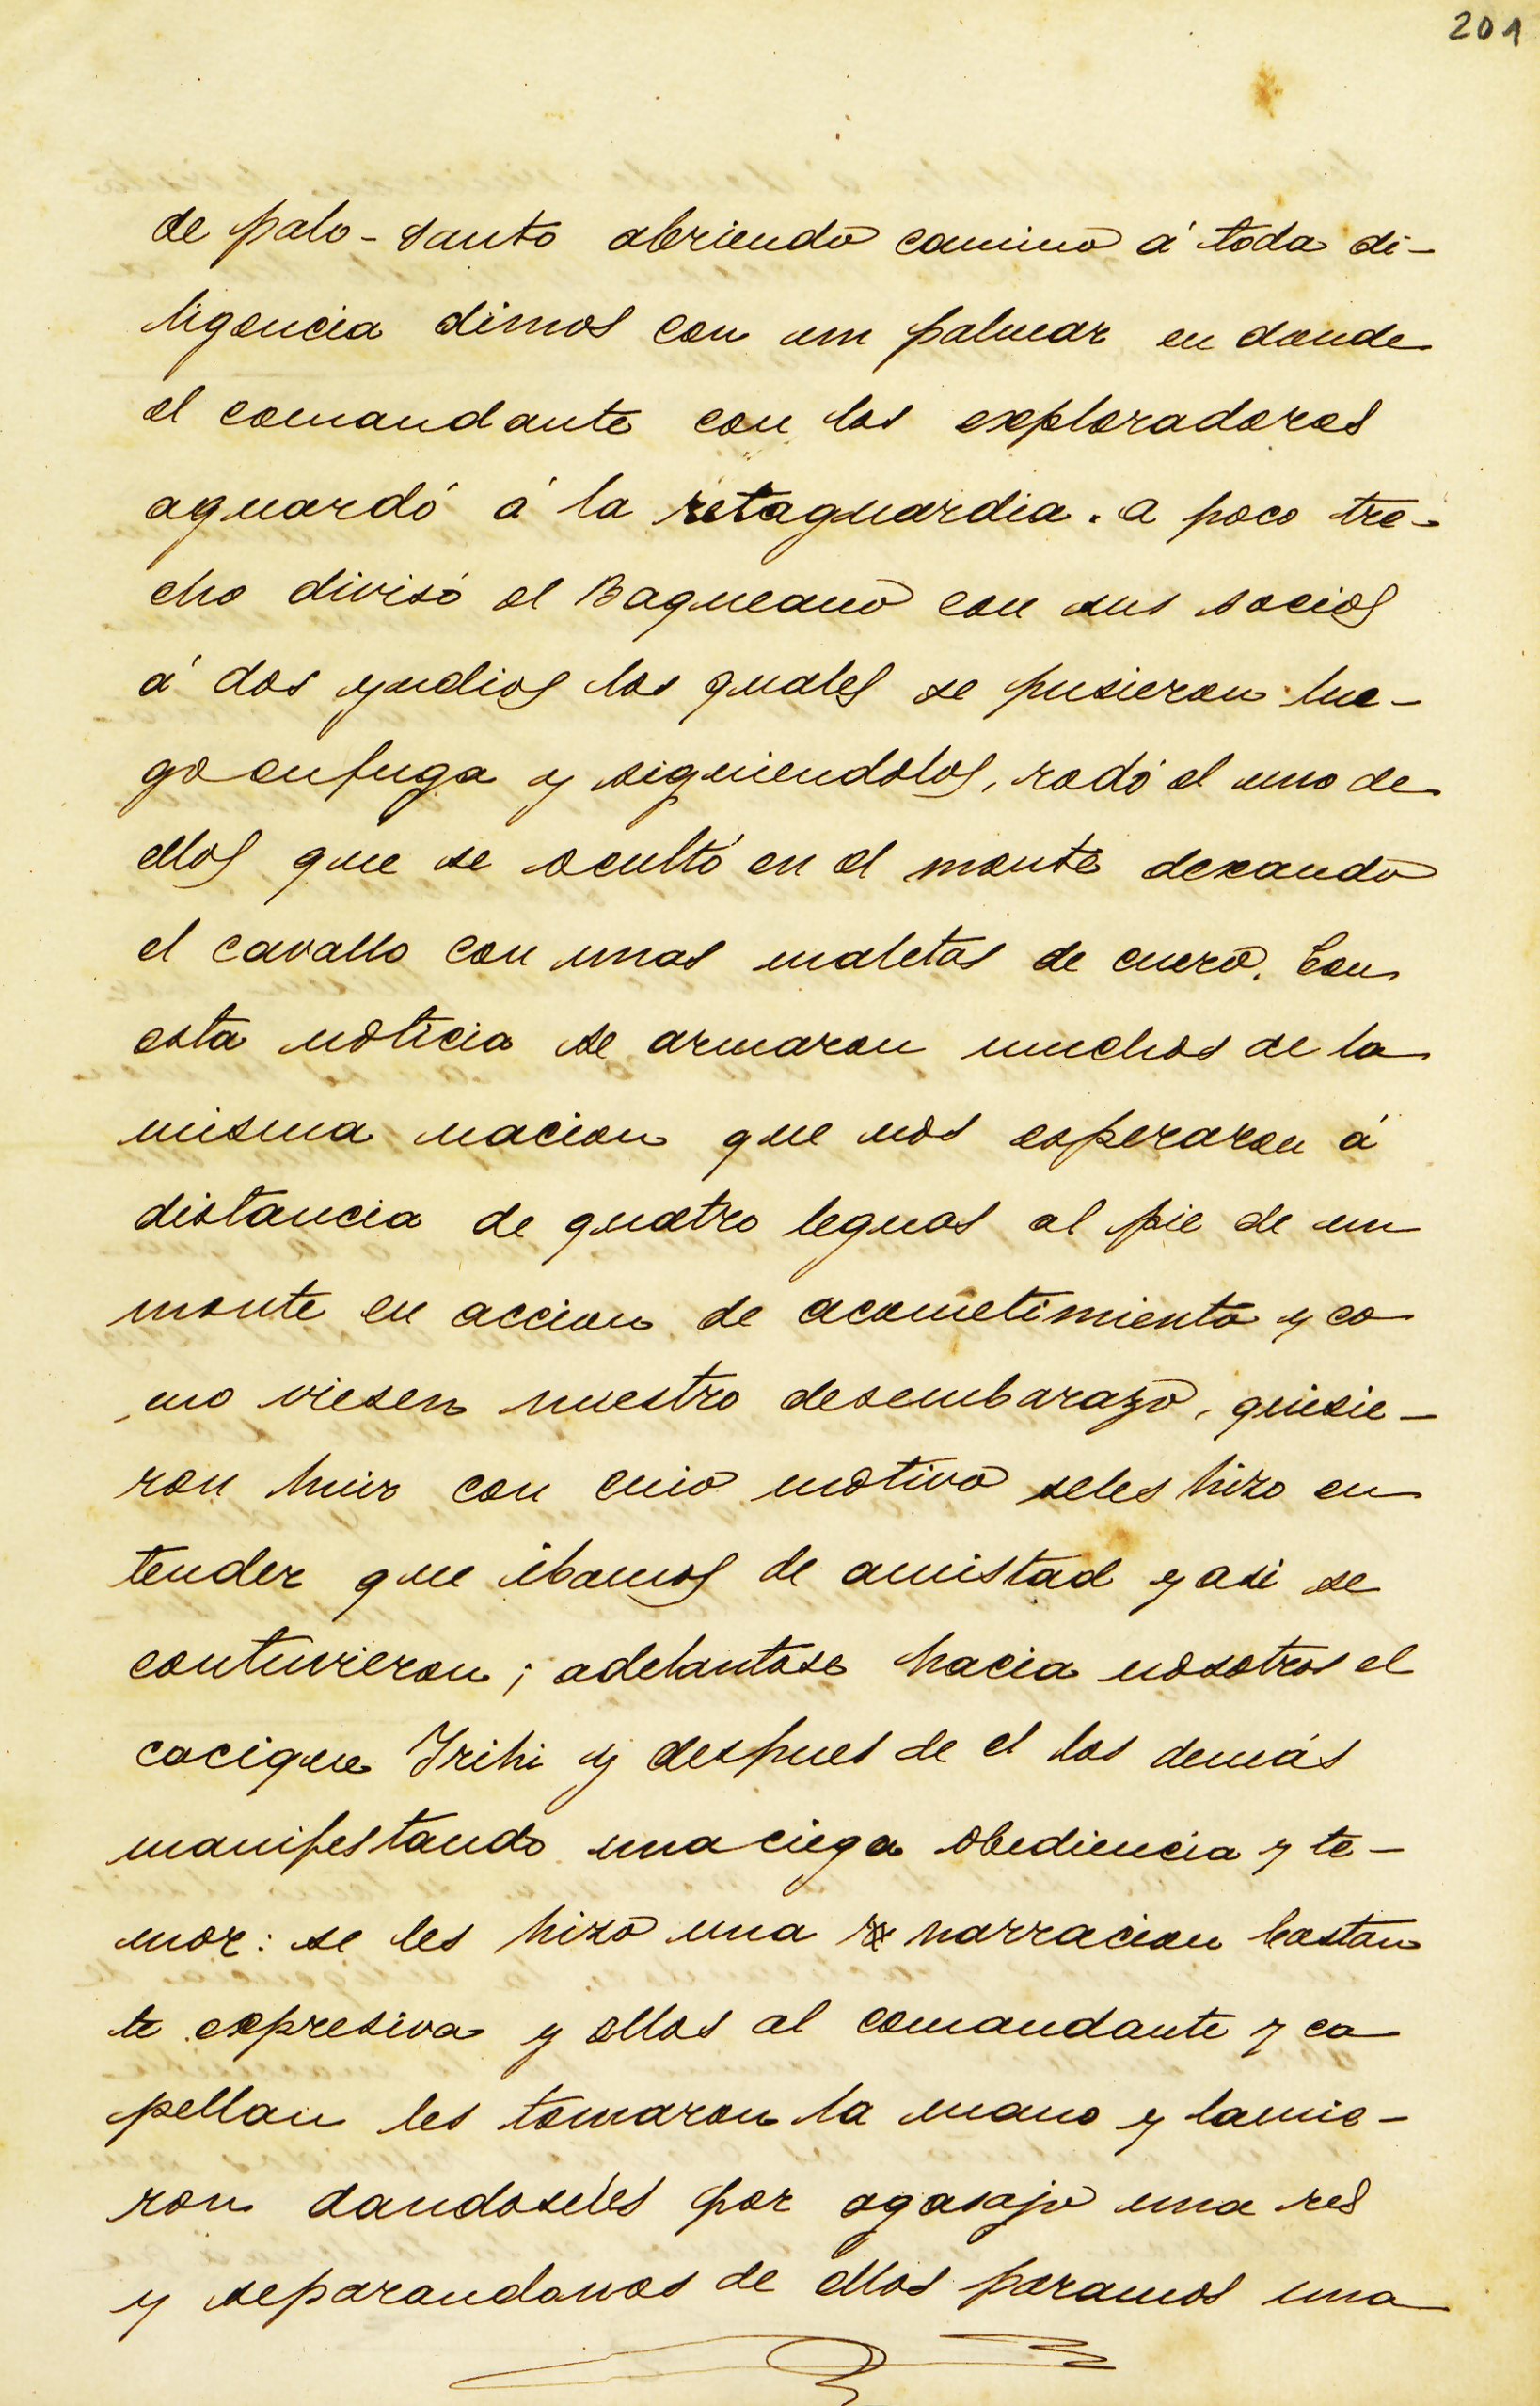 201
de palo-santo abriendo camino á toda di-
ligencia dimos con un palmar en donde
el comandante con los exploradores
aguardó á la retaguardia. a poco tre-
cho divisó el Baqueano con sus socios
á dos yndios los quales se pusieron lue-
go enfuga y siguiendolos, rodó el uno de
ellos que se ocultó en el monte dexando
el cavallo con unas maletas de cuero. Con
esta noticia se armaron muchos de la
misma nacion que nos esperaron á
distancia de quatro leguas al pie de un
monte en accion de acometimiento y co
mo viesen nuestro desembarazo, quisie-
ron huir con cuio motivo seles hizo en
tender que ibamos de amistad y asi se
contuvieron; adelantose hacia nosotros el
cacique Yrihi y despues de el los demás
manifestando una ciega obediencia y te-
mor: se les hizo una narracion bastan
te expresiva y ellos al comandante y ca
pellan les tomaron la mano y lamie-
ron dandoseles por agasajo una res
y separandonos de ellos paramos una